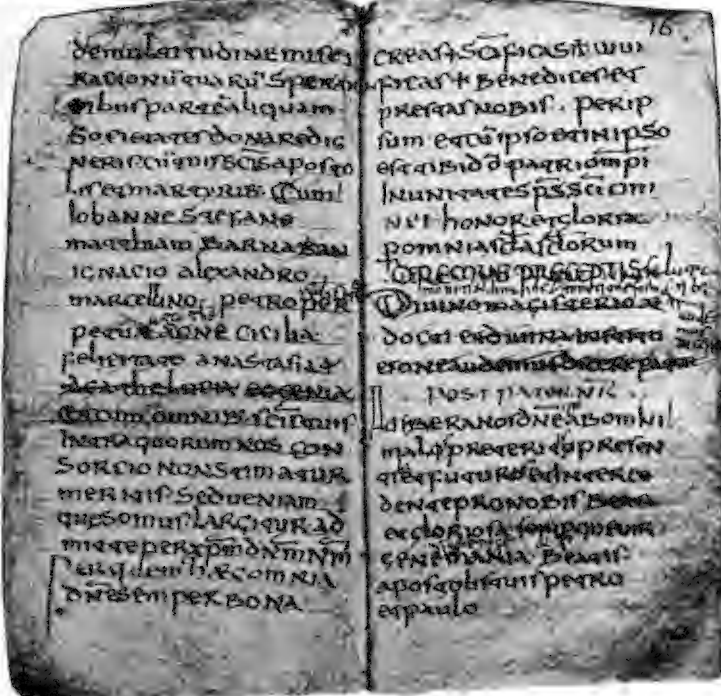 demultitudine misei
rationū tuarū speran
tibus partē aliquam
Societates donare dig
neris cū tuis scīs aposto
lis et martyrib Cum
Iohanne Stefano
matthiam Barnaban
ignacio alexandro
marcellino petro per
petua agne cicilia
felicitate anastasia
agathe lucia eogenia
et cum omnib scīs tuis
Intra quorum nos con
sorcio non stimatur
meritis sed ueniam
quesomus largitur ad
mitte per xpm dnm nm
per quem hec omnia
dne semper bona
16
creas + scīficas uiui
ficas + Benedices et
prestas nobis. per ip
sum et cū ipso et in ipso
est tibi dō patri ompi
In unitates sps sci om
nis honor et gloria
p omnia scla sclorum
Oremus preceptis
Diuino magisterio
docti et diuina
audemus dicere pater
post pater nr
Libera nos dne ab omni
malo preterito presen
ti et futuro et interce
dente pro nobis Beata
et gloriosa
gene maria Beatis
apostolis tuis petro
et paulo